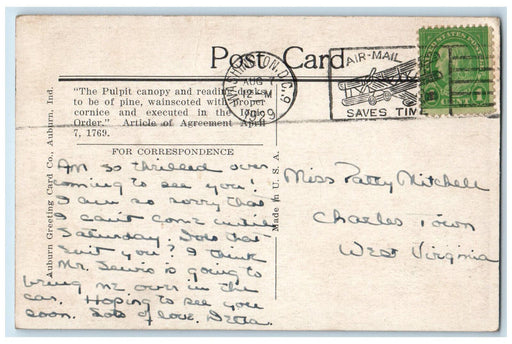 Post Card
"The Pulpit canopy and reading desks
to be of pine, wainscoted with proper
cornice and executed in the Ionic
Order." Article of Agreement April
7, 1769.
FOR CORRESPONDENCE
Auburn Greeting Card Co., Auburn, Ind.
Made in U. S. A.
WASHINGTON, D.C. 9
AUG
12 M
1929
AIR-MAIL
SAVES TIME
UNITED STATES POSTAGE
1 CENT 1
Am so thrilled over
coming to see you!
I am so sorry that
I can't come until
Saturday. Does that
suit you? I think
Mr. Lewis is going to
bring me over in the
car. Hoping to see you
soon. Lots of love.
Miss Patty Mitchell
Charles Town
West Virginia